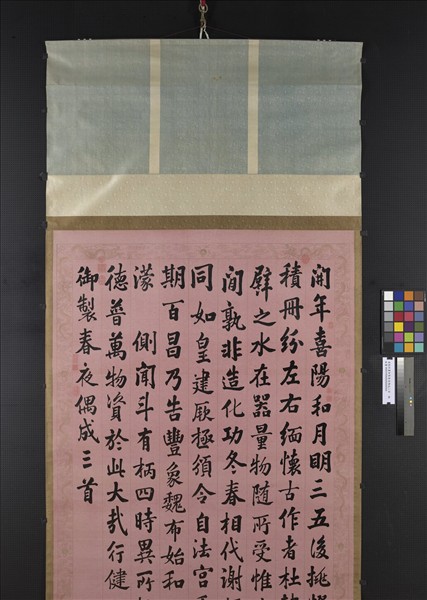 開年喜陽和月明三五後挑燈
積冊紛左右緬懷古作者杜韓
譬之水在器量物隨所受惟
閒孰非造化功冬春相代謝
同如皇建厥極須令自法宮
期百昌乃告豐象魏布始和
濛 側聞斗有柄四時異所
德普萬物資於此大哉行健
御製春夜偶成三首